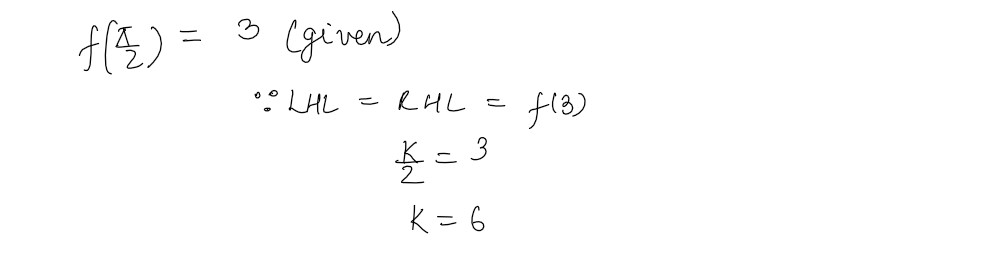 f(π/2) = 3 (given)
∵ LHL = RHL = f(3)
K/2 = 3
K = 6